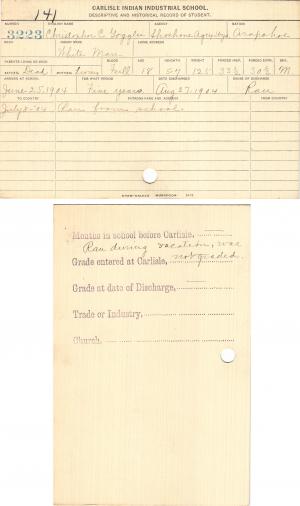 141
CARLISLE INDIAN INDUSTRIAL SCHOOL.
DESCRIPTIVE AND HISTORICAL RECORD OF STUDENT.
NUMBER ENGLISH NAME AGENCY NATION
3223 Christopher C. Goggles Shoshone Agency Arapahoe
BAND INDIAN NAME HOME ADDRESS
White Man
PARENTS LIVING OR DEAD BLOOD AGE HEIGHT WEIGHT FORCED INSP. FORCED EXPR. SEX
FATHER Dead MOTHER Living Full 18 5-7 125 33½ 30½ M
ARRIVED AT SCHOOL FOR WHAT PERIOD DATE DISCHARGED CAUSE OF DISCHARGE
June 25, 1904 Five years Aug 27, 1904 Ran
TO COUNTRY PATRONS NAME AND ADDRESS FROM COUNTRY
July 5-'04 Ran from school
Months in school before Carlisle,
Ran during vacation, was
Grade entered at Carlisle, not graded.
Grade at date of Discharge,
Trade or Industry,
Church,